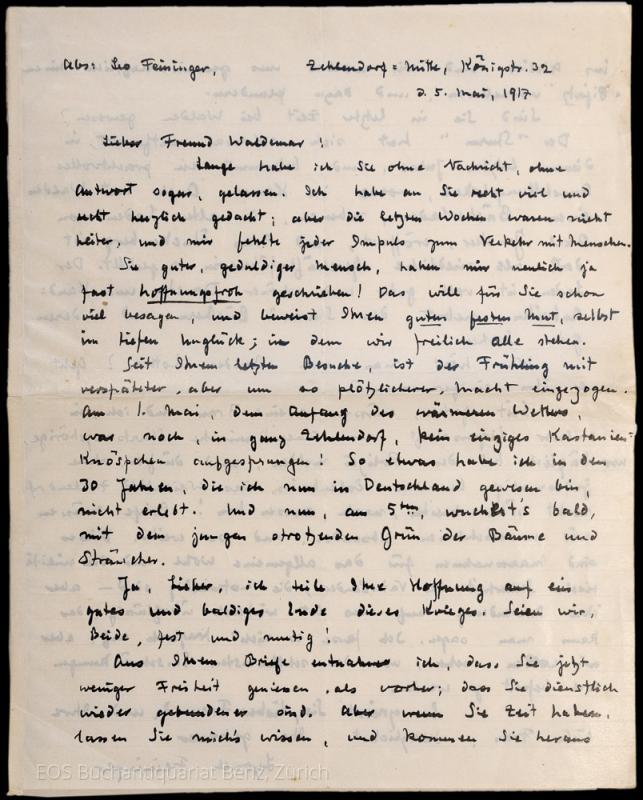 Abs: Leo Feininger, Zehlendorf = Mitte, Königstr. 32
d. 5. Mai, 1917
Lieber Freund Waldemar!
Lange habe ich Sie ohne Nachricht, ohne
Antwort sogar, gelassen. Ich habe an Sie recht viel und
recht herzlich gedacht; aber die letzten Wochen waren nicht
heiter, und mir fehlte jeder Impuls zum Verkehr mit Menschen.
Sie guter, geduldiger Mensch, haben mir neulich ja
fast hoffnungsfroh geschrieben! Das will für Sie schon
viel besagen, und beweist Ihren guten festen Mut, selbst
im tiefen Unglück; in dem wir freilich alle stehen.
Seit Ihrem letzten Besuche, ist der Frühling mit
verspäteter, aber um so plötzlicherer, Macht eingezogen.
Am 1. Mai dem Anfang des wärmeren Wetters,
war noch in ganz Zehlendorf, kein einziges Kastanien=
Knöspchen aufgesprungen! So etwas habe ich in den
30 Jahren, die ich nun in Deutschland gewesen bin,
nicht erlebt. Und nun, am 5ten, wuchert's bald,
mit dem jungen strotzenden Grün der Bäume und
Sträucher.
Ja, Lieber, ich teile Ihre Hoffnung auf ein
gutes und baldiges Ende dieses Krieges. Seien wir,
Beide, fest und mutig!
Aus Ihrem Briefe entnahm ich, dass Sie jetzt
weniger Freiheit geniessen, als vorher; dass Sie dienstlich
wieder gebundener sind. Aber wenn Sie Zeit haben,
lassen Sie mich's wissen, und kommen Sie heraus
EOS Buchantiquariat Benz, Zürich